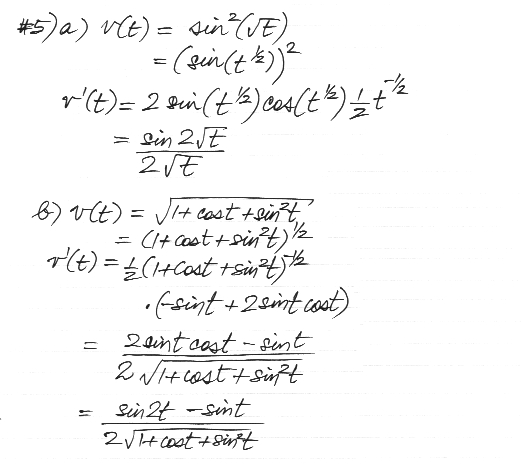 #5) a) v(t) = sin²(√t)
= (sin(t^½))²
v'(t) = 2 sin(t^½) cos(t^½) ½ t^-½
= sin 2√t / 2√t
b) v(t) = √(1 + cost + sin²t)
= (1 + cost + sin²t)^½
v'(t) = ½ (1 + cost + sin²t)^-½
· (-sint + 2sint cost)
= 2sint cost - sint / 2√(1 + cost + sin²t)
= sin2t - sint / 2√(1 + cost + sin²t)